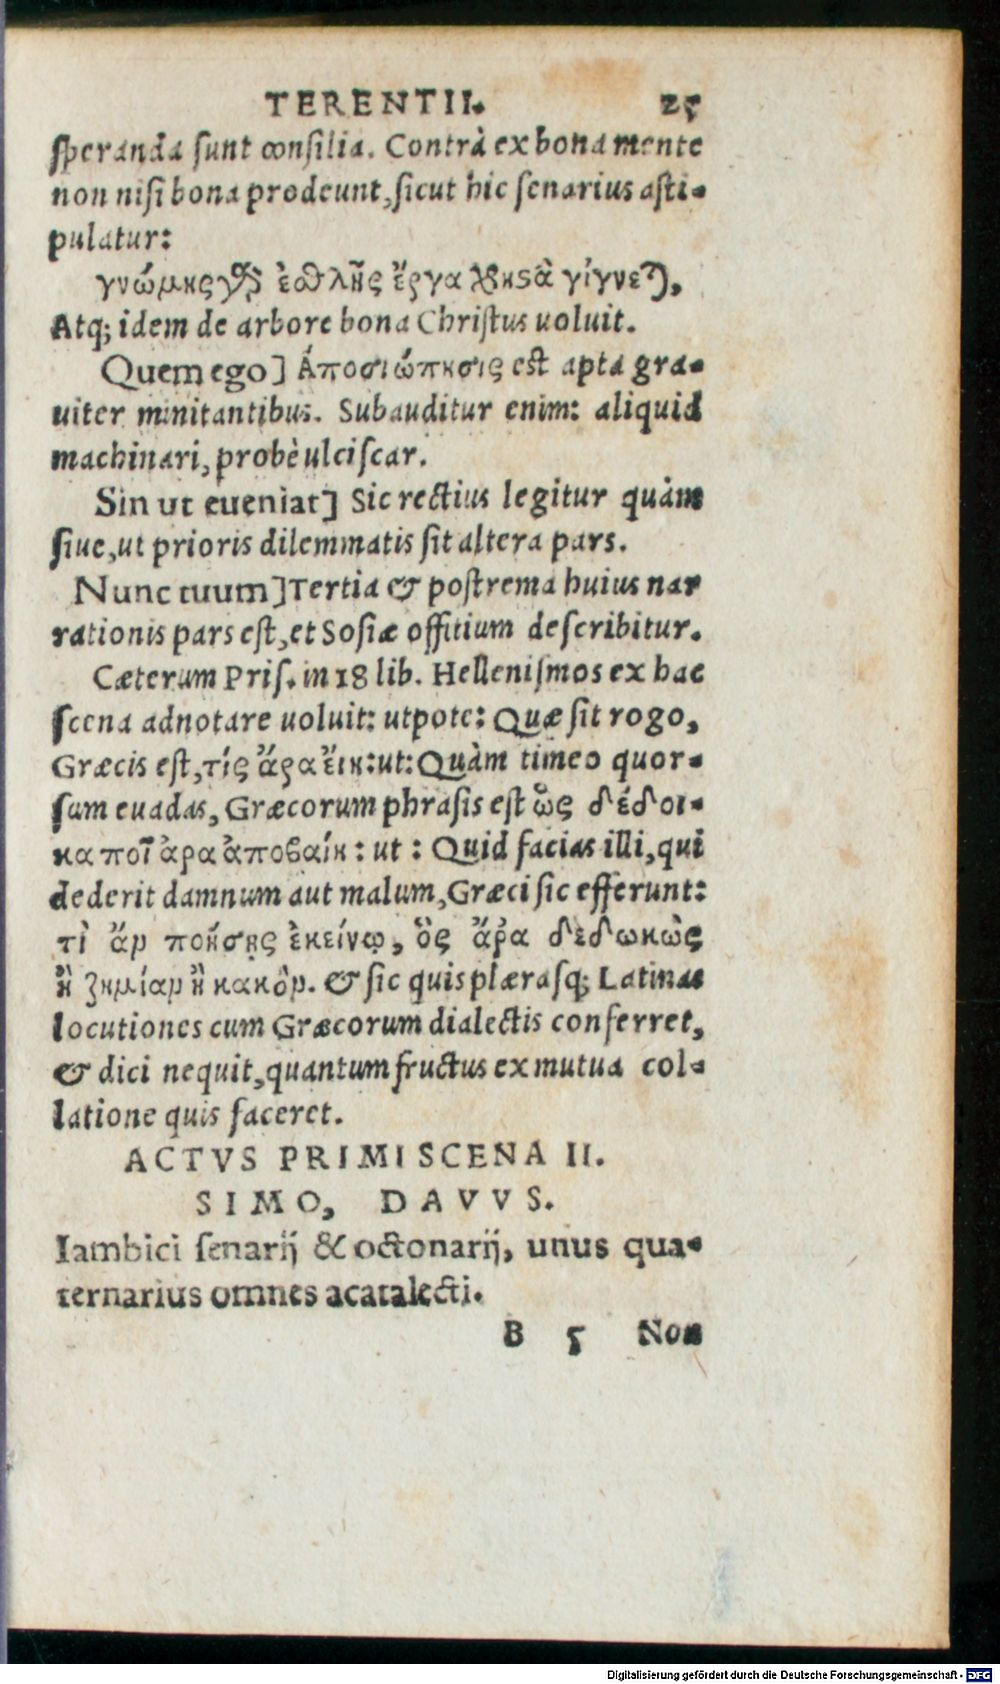 TERENTII. 25
speranda sunt consilia. Contrà ex bona mente
non nisi bona prodeunt, sicut hic senarius asti-
pulatur:
γνώμης γὰρ ἐσθλῆς ἔργα χρηστὰ γίγνεται,
Atq; idem de arbore bona Christus uoluit.
Quem ego] Ἀποσιώπησις est apta gra-
uiter minitantibus. Subauditur enim: aliquid
machinari, probè ulciscar.
Sin ut eueniat] Sic rectius legitur quàm
siue, ut prioris dilemmatis sit altera pars.
Nunc tuum] Tertia & postrema huius nar
rationis pars est, et Sosiæ offitium describitur.
Cæterum Pris. in 18 lib. Hellenismos ex hac
scena adnotare uoluit: utpote: Quæ sit rogo,
Græcis est, τίς ἄρα εἴη: ut: Quàm timeo quor-
sum euadas, Græcorum phrasis est ὣς δέδοι-
κα ποῖ ἀρα ἀποβαίη: ut: Quid facias illi, qui
dederit damnum aut malum, Græci sic efferunt:
τὶ ἄν ποιήσῃς ἐκείνῳ, ὃς ἄρα δεδωκὼς
ἢ ζημίαν ἢ κακὸν. & sic quis plærasq; Latinas
locutiones cum Græcorum dialectis conferret,
& dici nequit, quantum fructus ex mutua col-
latione quis faceret.
ACTVS PRIMI SCENA II.
SIMO, DAVVS.
Iambici senarij & octonarij, unus qua-
ternarius omnes acatalecti.
B 5 Non
Digitalisierung gefördert durch die Deutsche Forschungsgemeinschaft - DFG